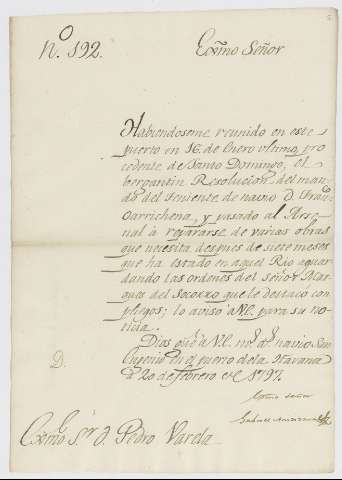 Nº 192.
Exmo Señor
Habiendoseme reunido en este
puerto en 16 de Enero ultimo, pro
cedente de Santo Domingo, el
bergantin Resolucion del man-
do del Teniente de navio D. Franco
Barrichena, y pasado al Arse-
nal à repararse de varias obras
que necesita despues de siete meses
que ha estado en aquel Rio aguar
dando las ordenes del señor Mar-
ques del Socorro que le destacò con
pliegos; lo aviso à V.E. para su no-
ticia.
Dios gue à V.E. ms. as. navio San
Eugenio en el puerto de la Havana
à 20 de febrero de 1797.
Exmo señor
Gabriel
Exmo Sr. D. Pedro Varela